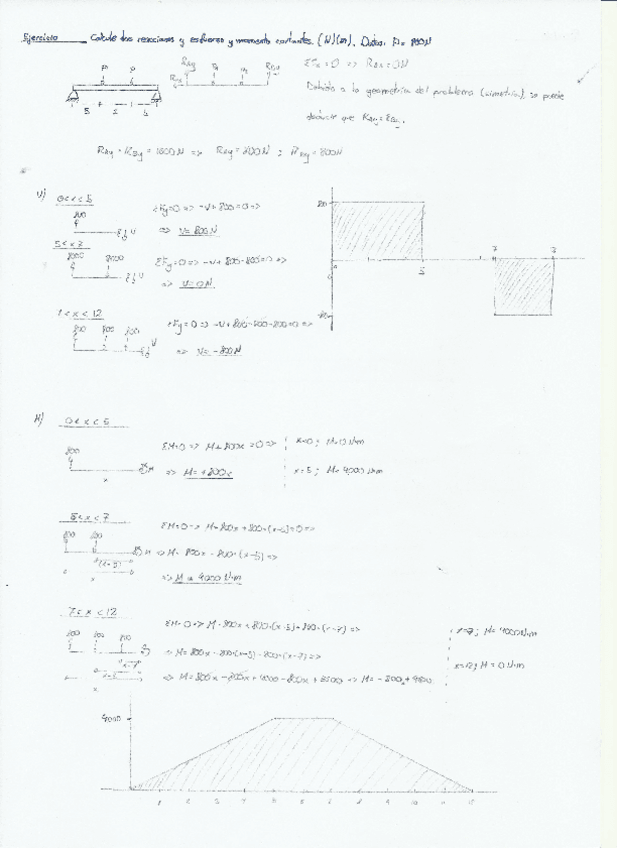 Ejercicio Calcule las reacciones y esfuerzo y momento cortantes. (N)(m). Datos: P= 800N
P P
5 2 5
RAy P P RBy
RAx
ΣFx=0 => RAx=0N
Debido a la geometría del problema (simetría), se puede
deducir que RAy=RBy.
RAy + RBy = 1600N => RAy=800N ; RBy=800N
V) 0<x<5
800
V
ΣFy=0 => -V+800=0 =>
=> V=800N
5<x<7
800 800
V
ΣFy=0 => -V+800-800=0 =>
=> V=0N
7<x<12
800 800 800
V
ΣFy=0 => -V+800-800-800=0 =>
=> V=-800N
5 7
M) 0<x<5
800
M
x
ΣM=0 => M+800x=0 =>
=> M=+800x
x=0; M=0 N·m
x=5; M=4000 N·m
5<x<7
800 800
M
(x-5)
x
ΣM=0 => M-800x+800·(x-5)=0 =>
=> M=800x-800·(x-5) =>
=> M=4000 N·m
7<x<12
800 800 800
x-7
x-5
x
ΣM=0 => M-800x+800·(x-5)+800·(x-7) =>
=> M=800x-800(x-5)-800·(x-7) =>
=> M=800x-800x+4000-800x+5600 => M=-800x+9600
x=7; M=4000N·m
x=12; M=0 N·m
4000
1 2 3 4 5 6 7 8 9 10 11 12